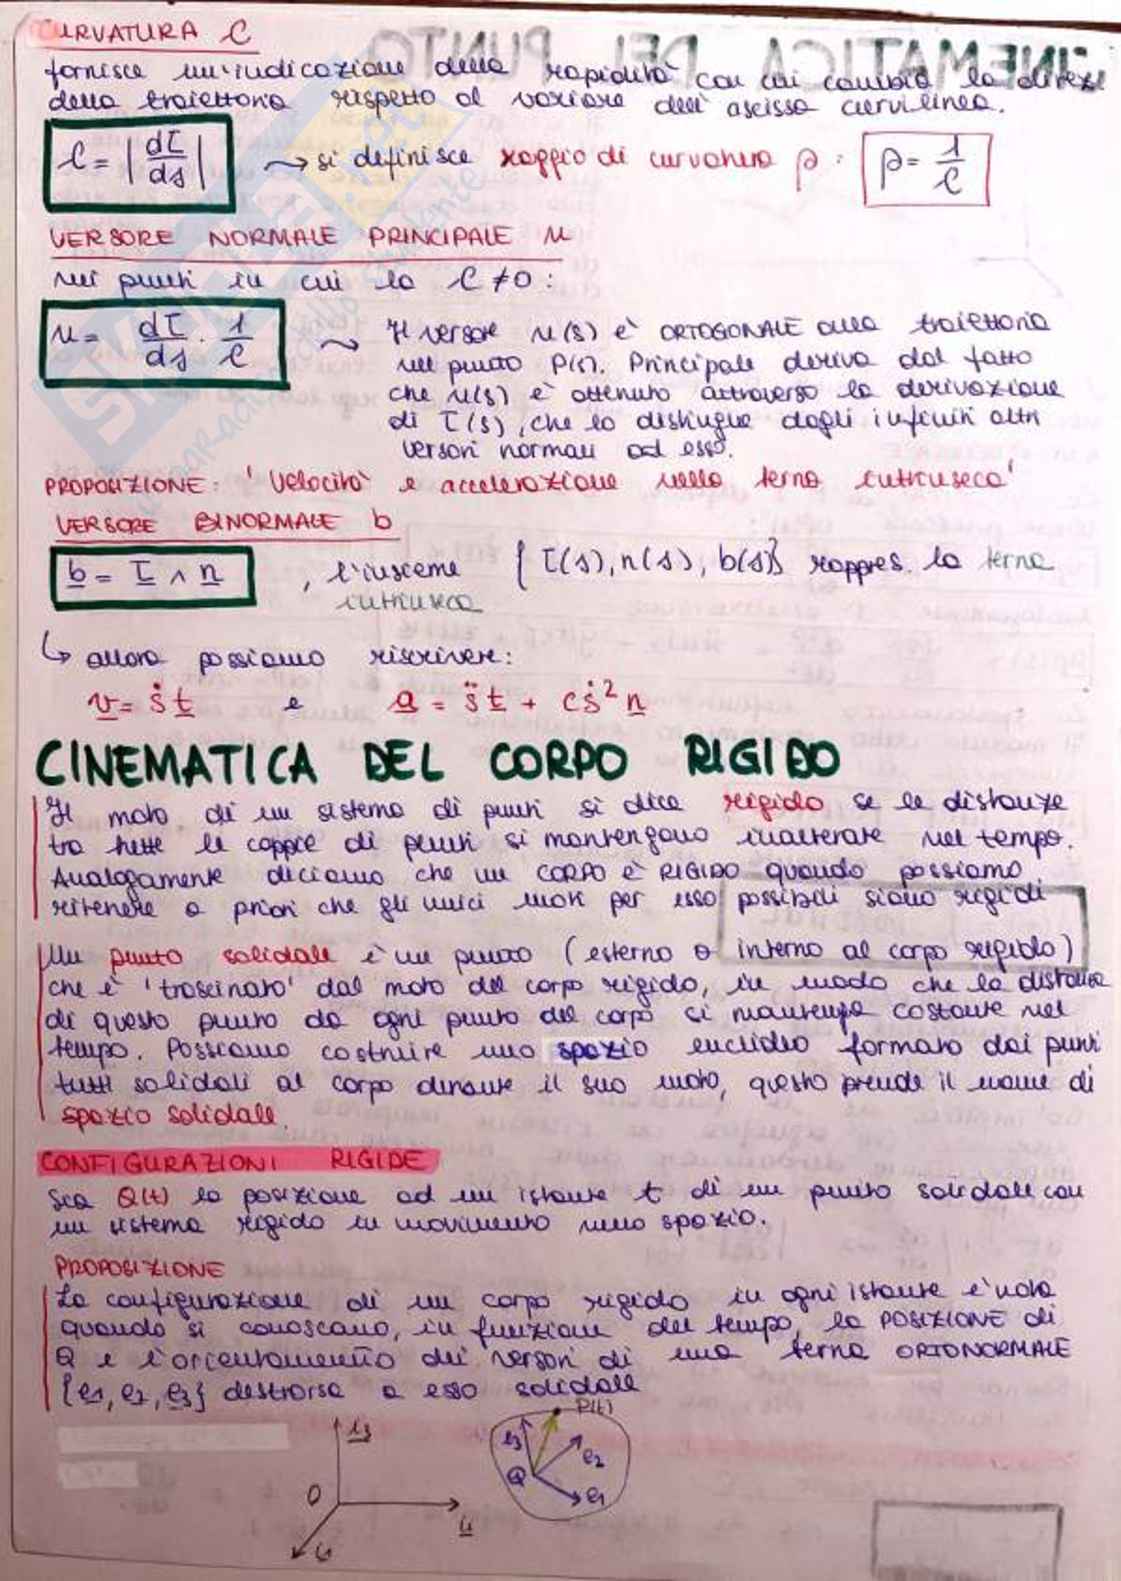 CURVATURA C
fornisce un'indicazione della rapidità con cui cambia la direz
della traiettoria rispetto al variare dell'ascissa curvilinea.
C = | dτ/ds | ⤳ si definisce raggio di curvatura ρ : ρ = 1/C
VERSORE NORMALE PRINCIPALE n
nei punti in cui la C ≠ 0 :
n = dτ/ds · 1/C ⤳ Il versore n(s) è ORTOGONALE alla traiettoria
nel punto P(s). Principale deriva dal fatto
che n(s) è ottenuto attraverso la derivazione
di τ(s), che lo distingue dagli infiniti altri
versori normali ad esso.
PROPOSIZIONE: 'Velocità e accelerazione nella terna intrinseca'
VERSORE BINORMALE b
b = τ ∧ n , l'insieme {τ(s), n(s), b(s)} rappres. la terna
intrinseca
↳ allora possiamo riscrivere:
v = ṡ t e a = s̈ t + cṡ² n
CINEMATICA DEL CORPO RIGIDO
Il moto di un sistema di punti si dice rigido se le distanze
tra tutte le coppie di punti si mantengono inalterate nel tempo.
Analogamente diciamo che un CORPO È RIGIDO quando possiamo
ritenere a priori che gli unici moti per esso possibili siano rigidi
Un punto solidale è un punto (esterno o interno al corpo rigido)
che è 'trascinato' dal moto del corpo rigido, in modo che la distanza
di questo punto da ogni punto del corpo si mantenga costante nel
tempo. Possiamo costruire uno spazio euclideo formato dai punti
tutti solidali al corpo durante il suo moto, questo prende il nome di
spazio solidale.
CONFIGURAZIONI RIGIDE
Sia Q(t) la posizione ad un istante t di un punto solidale con
un sistema rigido in movimento nello spazio.
PROPOSIZIONE
La configurazione di un corpo rigido in ogni istante è nota
quando si conoscano, in funzione del tempo, la POSIZIONE di
Q e l'orientamento dei versori di una terna ORTONORMALE
{e1, e2, e3} destrorsa a esso solidale
P(t)
i3
e3
e2
Q
O
e1